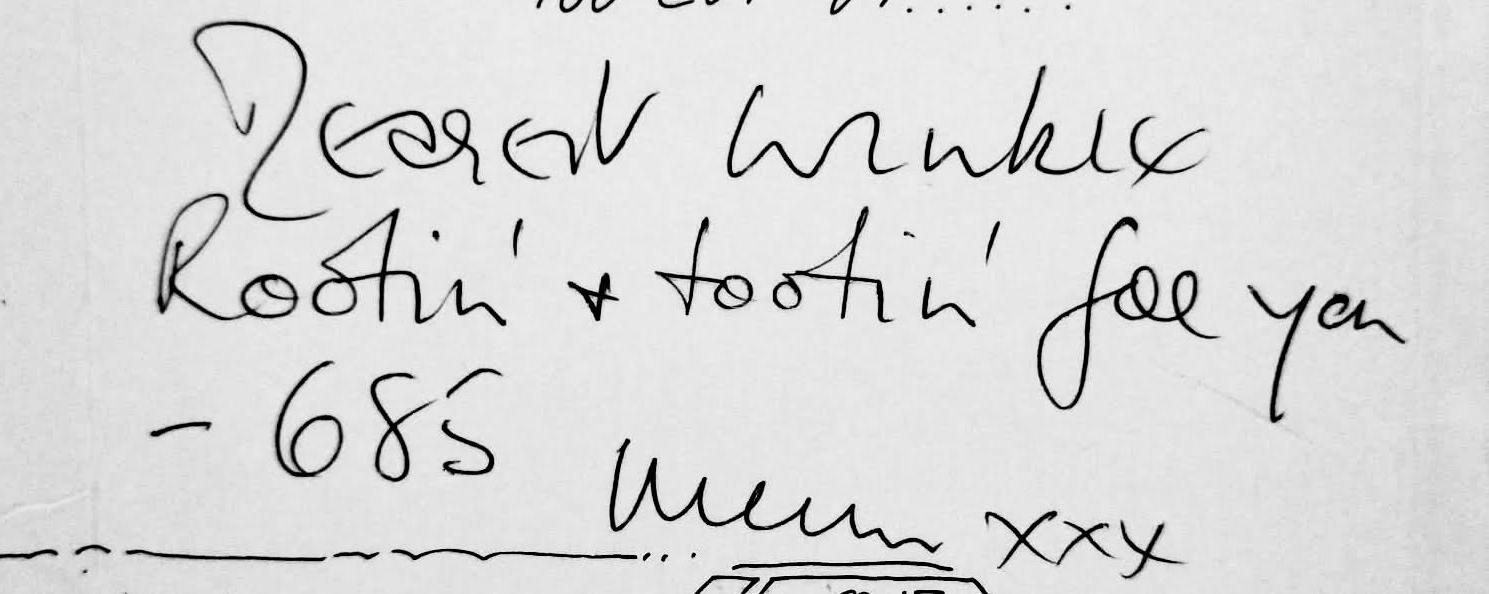 Dearest Winkie
Rootin' & tootin' for you
- 685
xxx